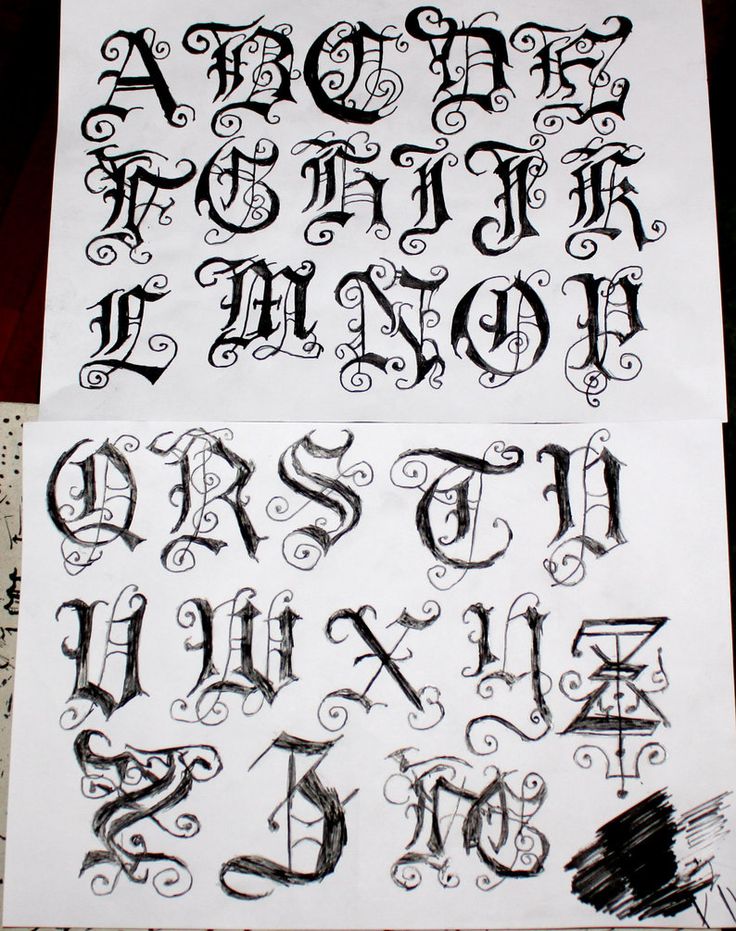 A B C D E
F G H I J K
L M N O P
Q R S T U
V W X Y Z
Z Z M